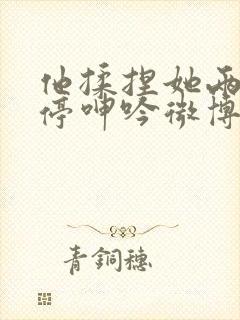 他揉捏她两
停呻吟微博
青铜穗